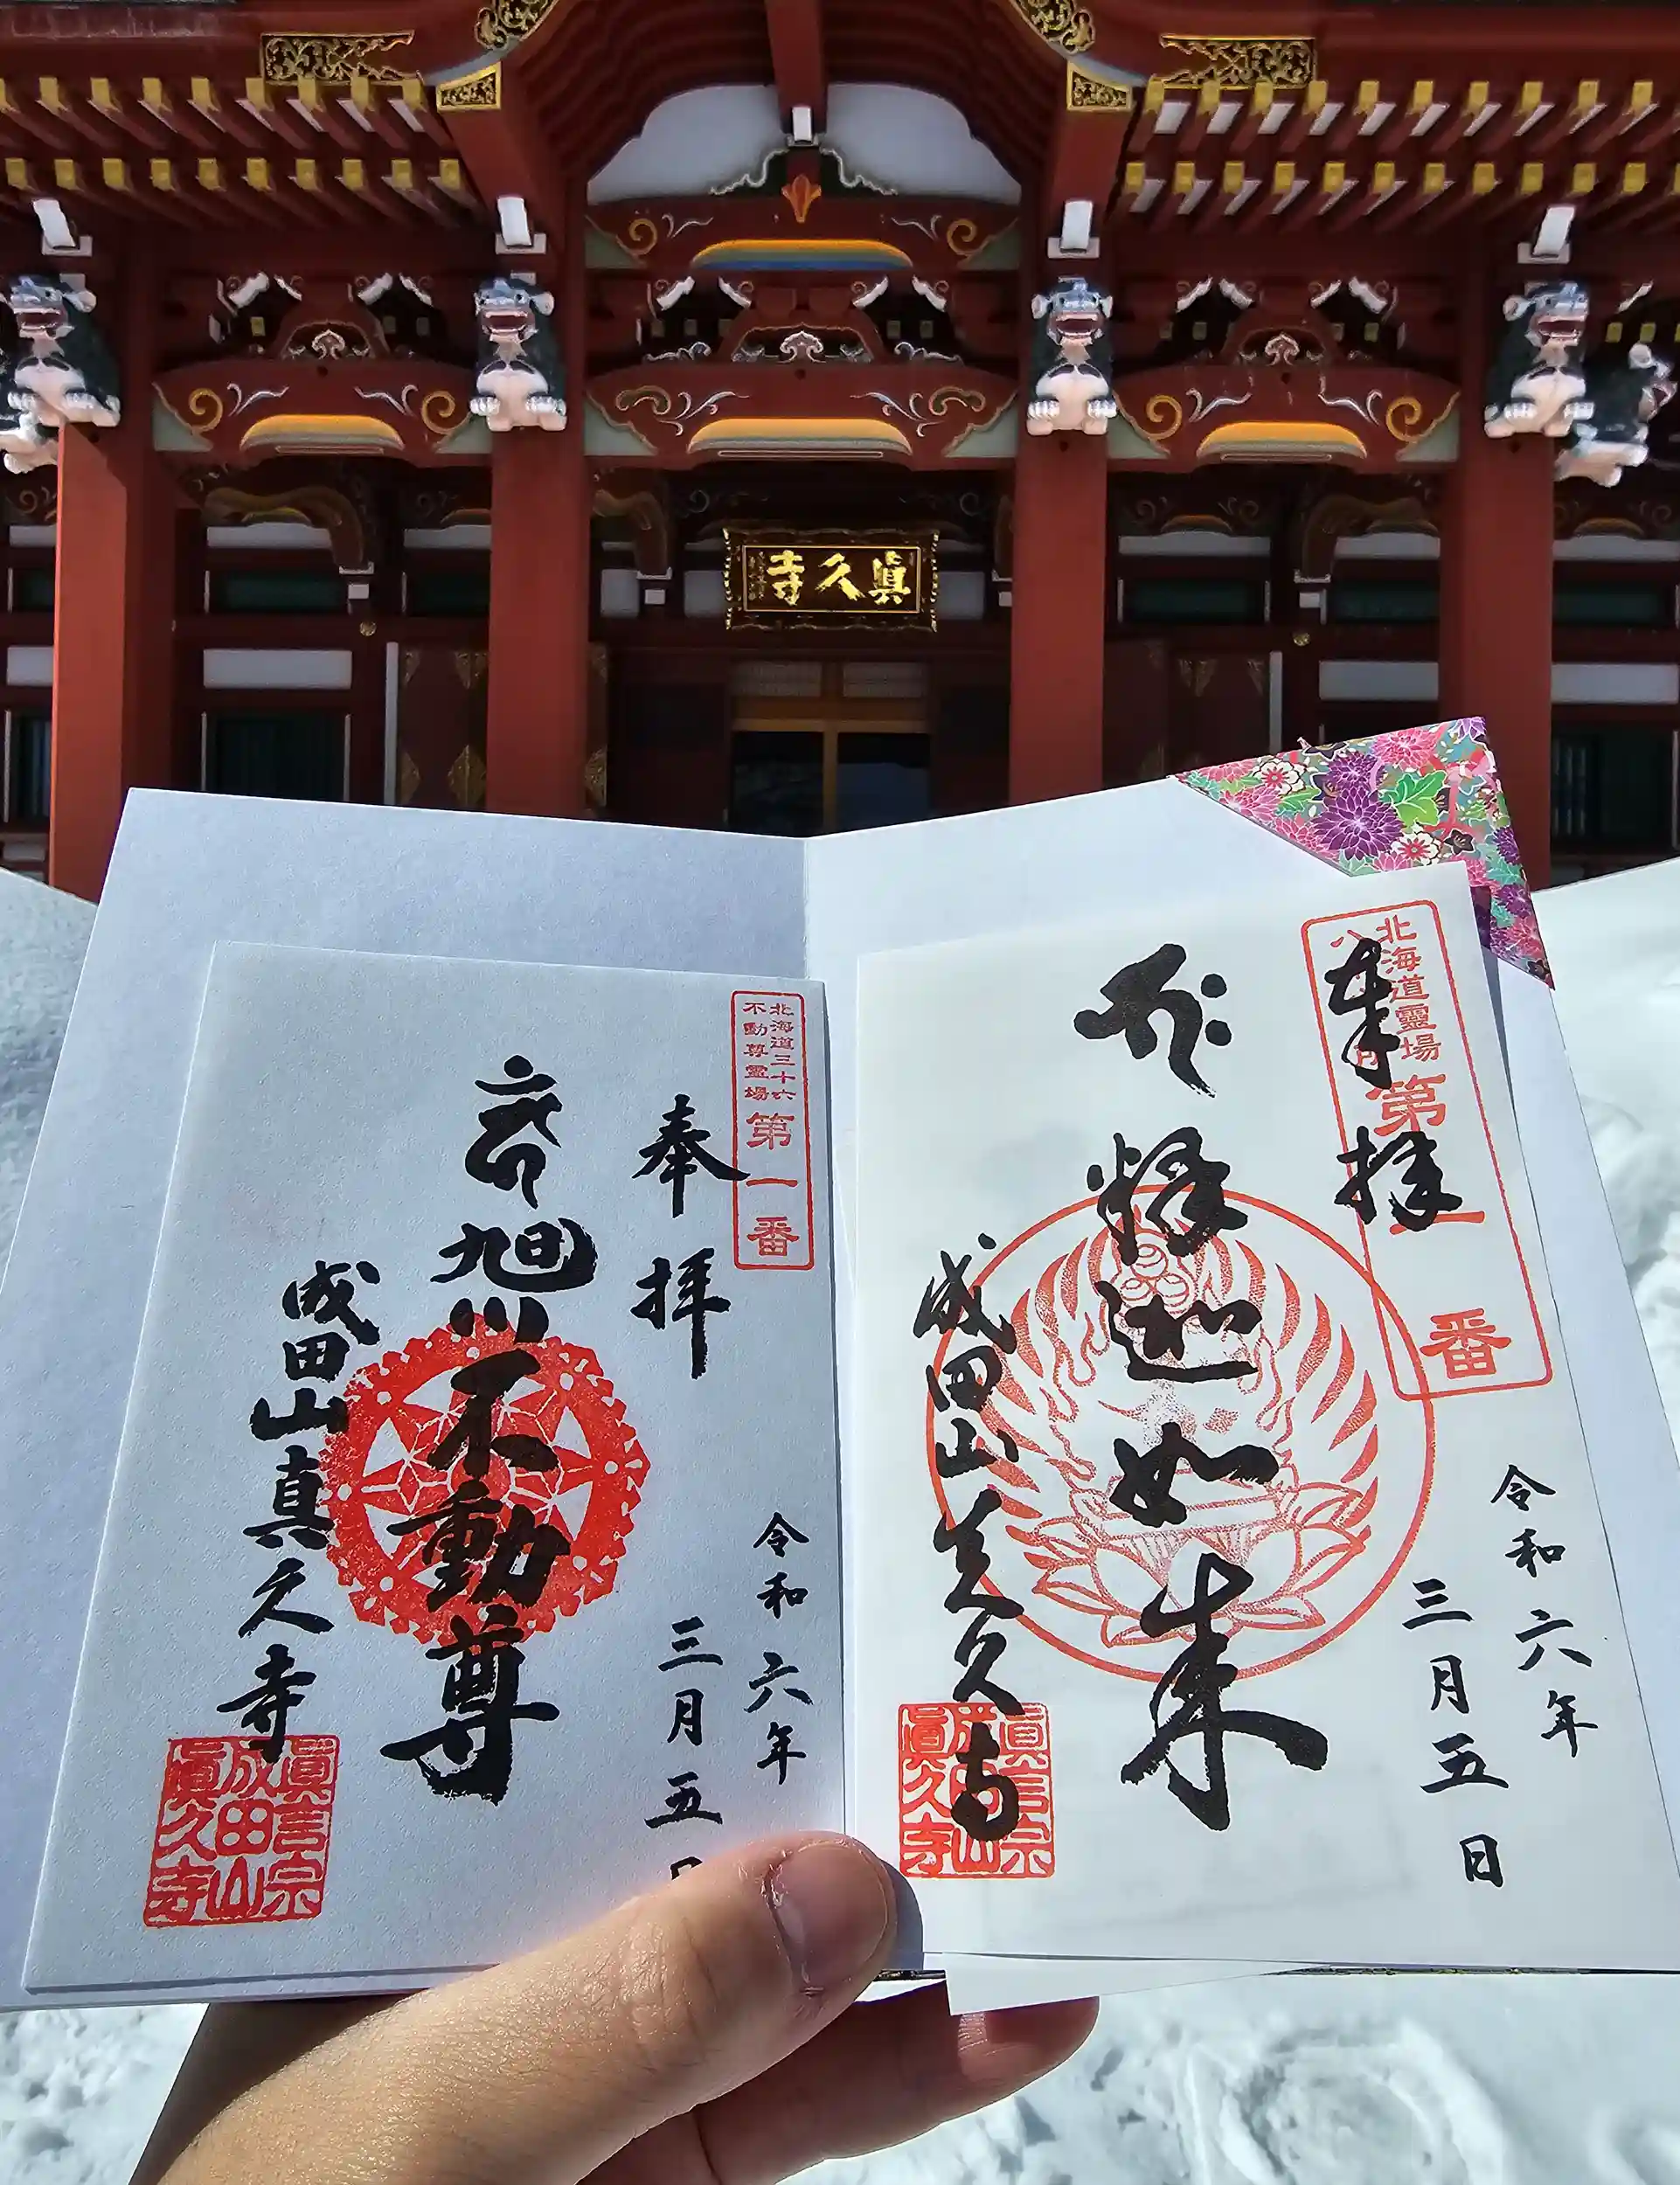 眞久寺
奉拝
北海道霊場
第一番
釋迦如来
令和六年
三月五日
成田山真久寺
眞言宗
成田山
眞久寺
北海道三十六
不動尊霊場
第一番
奉拝
旭川不動尊
令和六年
三月五日
成田山真久寺
眞言宗
成田山
眞久寺